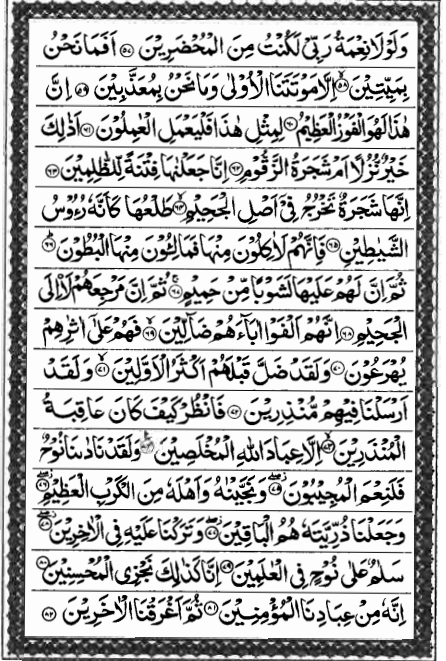 وَلَوْلَا نِعْمَةُ رَبِّیْ لَكُنْتُ مِنَ الْمُحْضَرِیْنَ ﴿۵۷﴾ اَفَمَا نَحْنُ
بِمَیِّتِیْنَ ﴿۵۸﴾ اِلَّا مَوْتَتَنَا الْاُوْلٰی وَمَا نَحْنُ بِمُعَذَّبِیْنَ ﴿۵۹﴾ اِنَّ
هٰذَا لَهُوَ الْفَوْزُ الْعَظِیْمُ ﴿۶۰﴾ لِمِثْلِ هٰذَا فَلْیَعْمَلِ الْعٰمِلُوْنَ ﴿۶۱﴾ اَذٰلِكَ
خَیْرٌ نُّزُلًا اَمْ شَجَرَةُ الزَّقُّوْمِ ﴿۶۲﴾ اِنَّا جَعَلْنٰهَا فِتْنَةً لِّلظّٰلِمِیْنَ ﴿۶۳﴾
اِنَّهَا شَجَرَةٌ تَخْرُجُ فِیْۤ اَصْلِ الْجَحِیْمِ ﴿۶۴﴾ طَلْعُهَا كَاَنَّهٗ رُءُوْسُ
الشَّیٰطِیْنِ ﴿۶۵﴾ فَاِنَّهُمْ لَاٰكِلُوْنَ مِنْهَا فَمَالِـُٔوْنَ مِنْهَا الْبُطُوْنَ ﴿۶۶﴾
ثُمَّ اِنَّ لَهُمْ عَلَیْهَا لَشَوْبًا مِّنْ حَمِیْمٍ ﴿۶۷﴾ ثُمَّ اِنَّ مَرْجِعَهُمْ لَا۟اِلَی
الْجَحِیْمِ ﴿۶۸﴾ اِنَّهُمْ اَلْفَوْا اٰبَآءَهُمْ ضَآلِّیْنَ ﴿۶۹﴾ فَهُمْ عَلٰۤی اٰثٰرِهِمْ
یُهْرَعُوْنَ ﴿۷۰﴾ وَلَقَدْ ضَلَّ قَبْلَهُمْ اَكْثَرُ الْاَوَّلِیْنَ ﴿۷۱﴾ وَلَقَدْ
اَرْسَلْنَا فِیْهِمْ مُّنْذِرِیْنَ ﴿۷۲﴾ فَانْظُرْ كَیْفَ كَانَ عَاقِبَةُ
الْمُنْذَرِیْنَ ﴿۷۳﴾ اِلَّا عِبَادَ اللّٰهِ الْمُخْلَصِیْنَ ﴿۷۴﴾ وَلَقَدْ نَادٰىنَا نُوْحٌ
فَلَنِعْمَ الْمُجِیْبُوْنَ ﴿۷۵﴾ وَنَجَّیْنٰهُ وَاَهْلَهٗ مِنَ الْكَرْبِ الْعَظِیْمِ ﴿۷۶﴾
وَجَعَلْنَا ذُرِّیَّتَهٗ هُمُ الْبٰقِیْنَ ﴿۷۷﴾ وَتَرَكْنَا عَلَیْهِ فِی الْاٰخِرِیْنَ ﴿۷۸﴾
سَلٰمٌ عَلٰی نُوْحٍ فِی الْعٰلَمِیْنَ ﴿۷۹﴾ اِنَّا كَذٰلِكَ نَجْزِی الْمُحْسِنِیْنَ ﴿۸۰﴾
اِنَّهٗ مِنْ عِبَادِنَا الْمُؤْمِنِیْنَ ﴿۸۱﴾ ثُمَّ اَغْرَقْنَا الْاٰخَرِیْنَ ﴿۸۲﴾